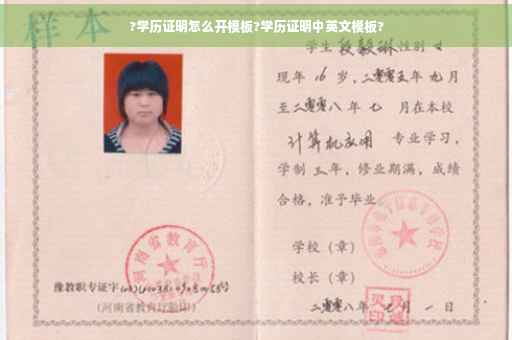 ?学历证明怎么开模板?学历证明中英文模板?
样本
学生 段毅琳 性别 女
现年 16 岁,二零零五年 九 月
至二零零八年 七 月在本校
计算机应用 专业学习,
学制 三 年,修业期满,成绩
合格,准予毕业
学校(章)
校长(章)
二零零八年 七 月 一 日
河南省教育厅
豫教职专证字
(河南省教育厅验印)